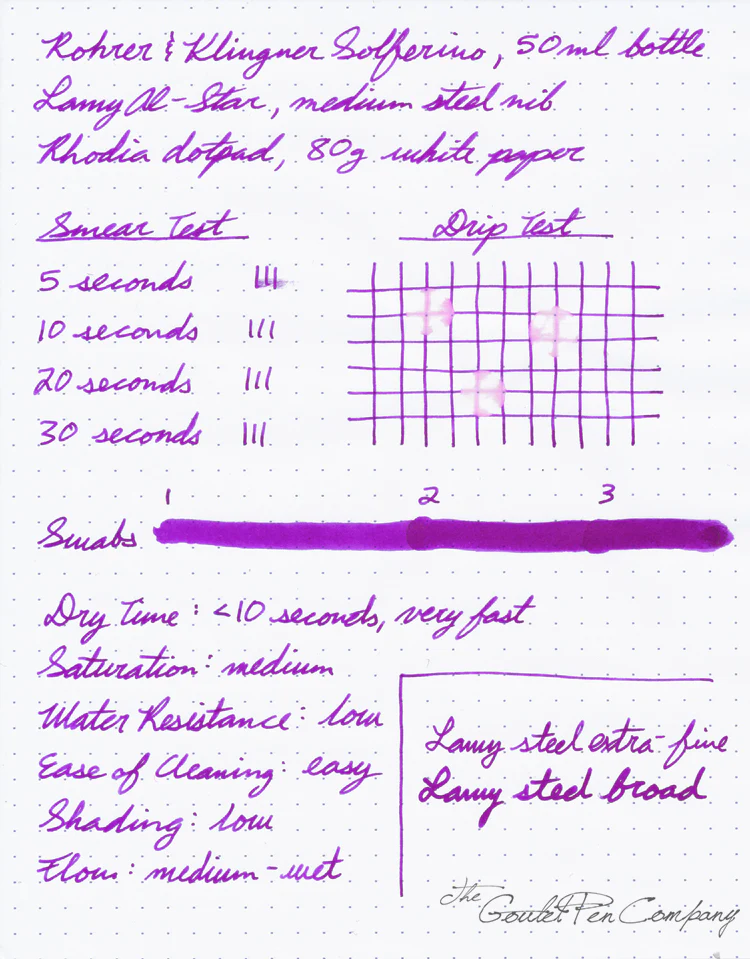 Rohrer & Klingner Solferino, 50ml bottle
Lamy Al-Star, medium steel nib
Rhodia dotpad, 80g white paper
Smear Test
5 seconds
10 seconds
20 seconds
30 seconds
Drip Test
1 2 3
Swabs
Dry Time: <10 seconds, very fast
Saturation: medium
Water Resistance: low
Ease of Cleaning: easy
Shading: low
Flow: medium-wet
Lamy steel extra-fine
Lamy steel broad
The Goulet Pen Company